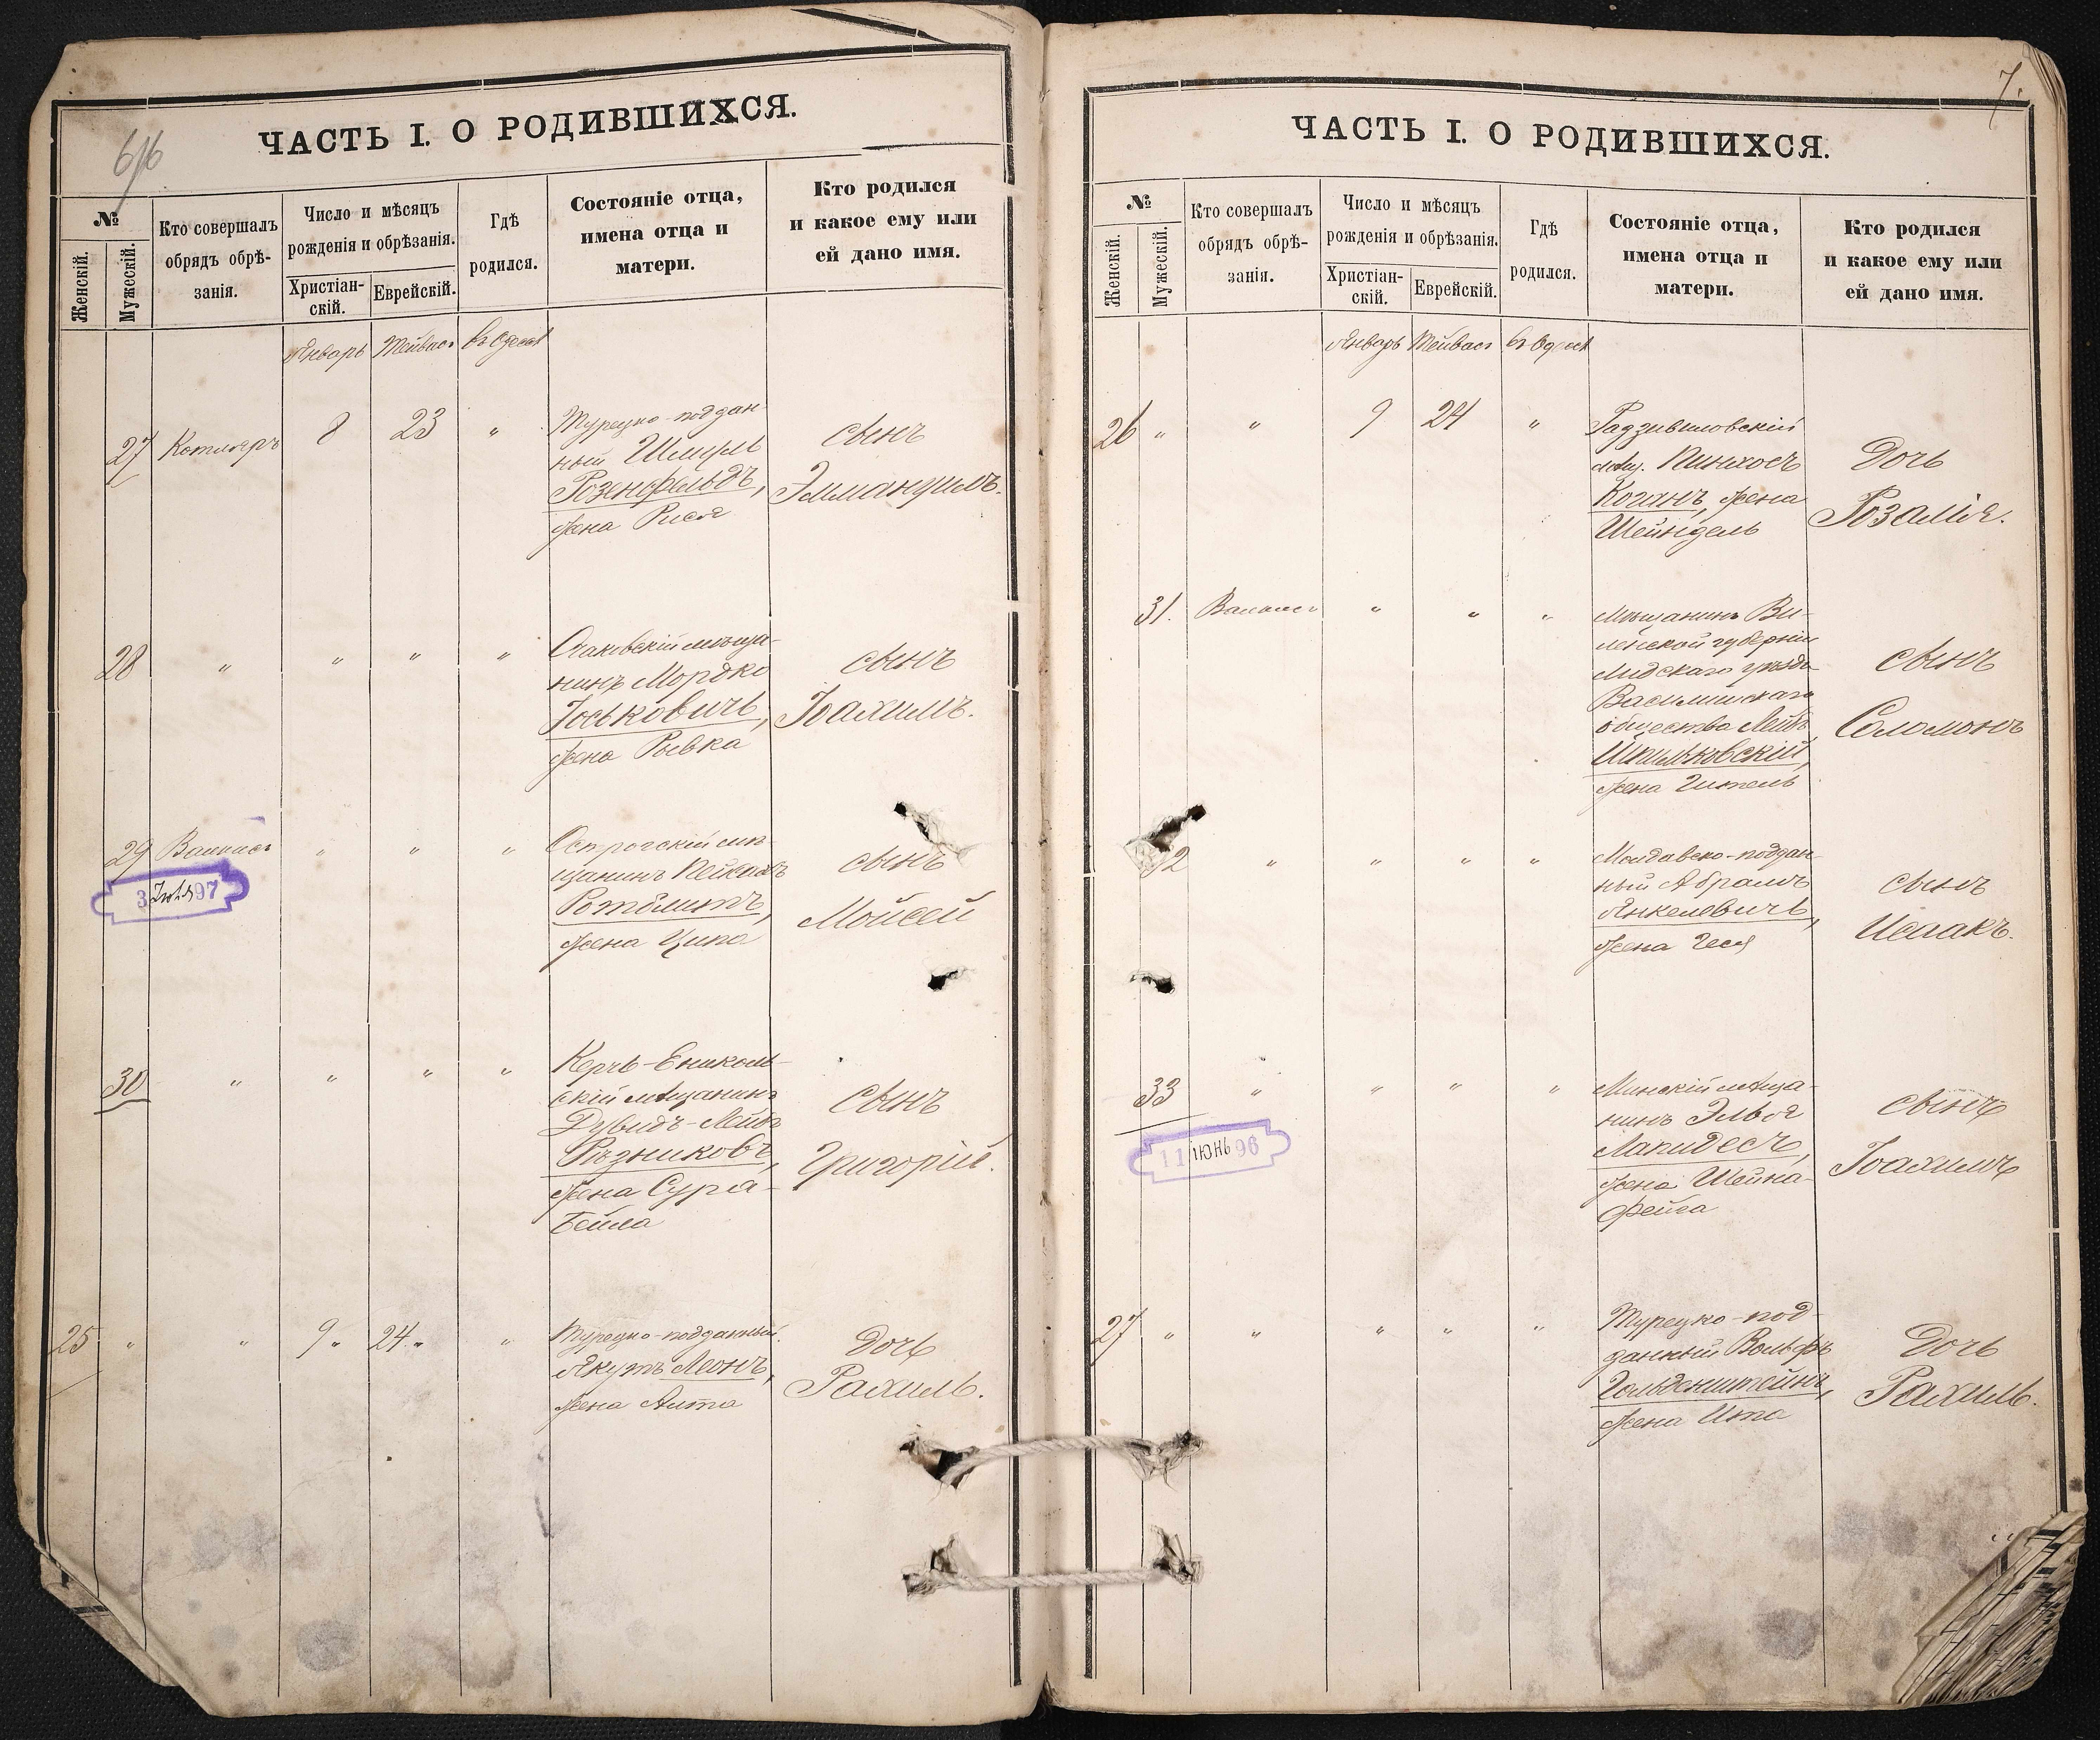 6/16
ЧАСТЬ I. О РОДИВШИХСЯ.
№
Женскій.
Мужескій.
Кто совершалъ
обрядъ обрѣ-
занія.
Число и мѣсяцъ
рожденія и обрѣзанія.
Христіан-
скій.
Еврейскій.
Гдѣ
родился.
Состояніе отца,
имена отца и
матери.
Кто родился
и какое ему или
ей дано имя.
Январь Тейвасъ въ Одессѣ
27 Котляръ 8 23 "
Турецко-поддан-
ный Шмуль
Розенфельдъ,
жена Рися
сынъ
Эммануилъ.
28 " " " "
Очаковскій мѣща-
нинъ Мордко
Іоськовичъ,
жена Рывка
сынъ
Іоахимъ.
29 " " "
3 Іюля 97
Острогскій мѣ-
щанинъ
жена Ципа
сынъ
Мойсей
30 " " " "
Керчь-Ениколь-
скій мѣщанинъ
Дувидъ-Лейбъ
Рѣзниковъ,
жена Сура-
Бейла
сынъ
Григорій.
25 " " 9 " 24 " "
Турецко-подданный
Якутъ Леонъ,
жена Анта
Дочь
Рахиль.
7.
ЧАСТЬ I. О РОДИВШИХСЯ.
№
Женскій.
Мужескій.
Кто совершалъ
обрядъ обрѣ-
занія.
Число и мѣсяцъ
рожденія и обрѣзанія.
Христіан-
скій.
Еврейскій.
Гдѣ
родился.
Состояніе отца,
имена отца и
матери.
Кто родился
и какое ему или
ей дано имя.
Январь Тейвасъ въ Одессѣ
26 " " 9 24 "
Радзивиловскій
мѣщ. Пинхосъ
Коганъ, жена
Шейндель
Дочь
Розалія.
31. " " "
Мѣщанинъ Ви-
ленской губерніи
Лидскаго уѣзда
Василишскаго
общества Лейбъ
Шпильковскій,
жена Гитель
сынъ
Соломонъ
2 " " " "
Молдавско-поддан-
ный Абрамъ
Янкелевичъ,
жена Геся
сынъ
Исаакъ.
33 " " " "
11 ІЮНЬ 96
Минскій мѣща-
нинъ Элья
Лапидесъ,
жена Шейна-
Фейга
сынъ
Іоахимъ
27 " " " " "
Турецко-под-
данный Вольфъ
Гольденштейнъ,
жена Ита
Дочь
Рахиль.